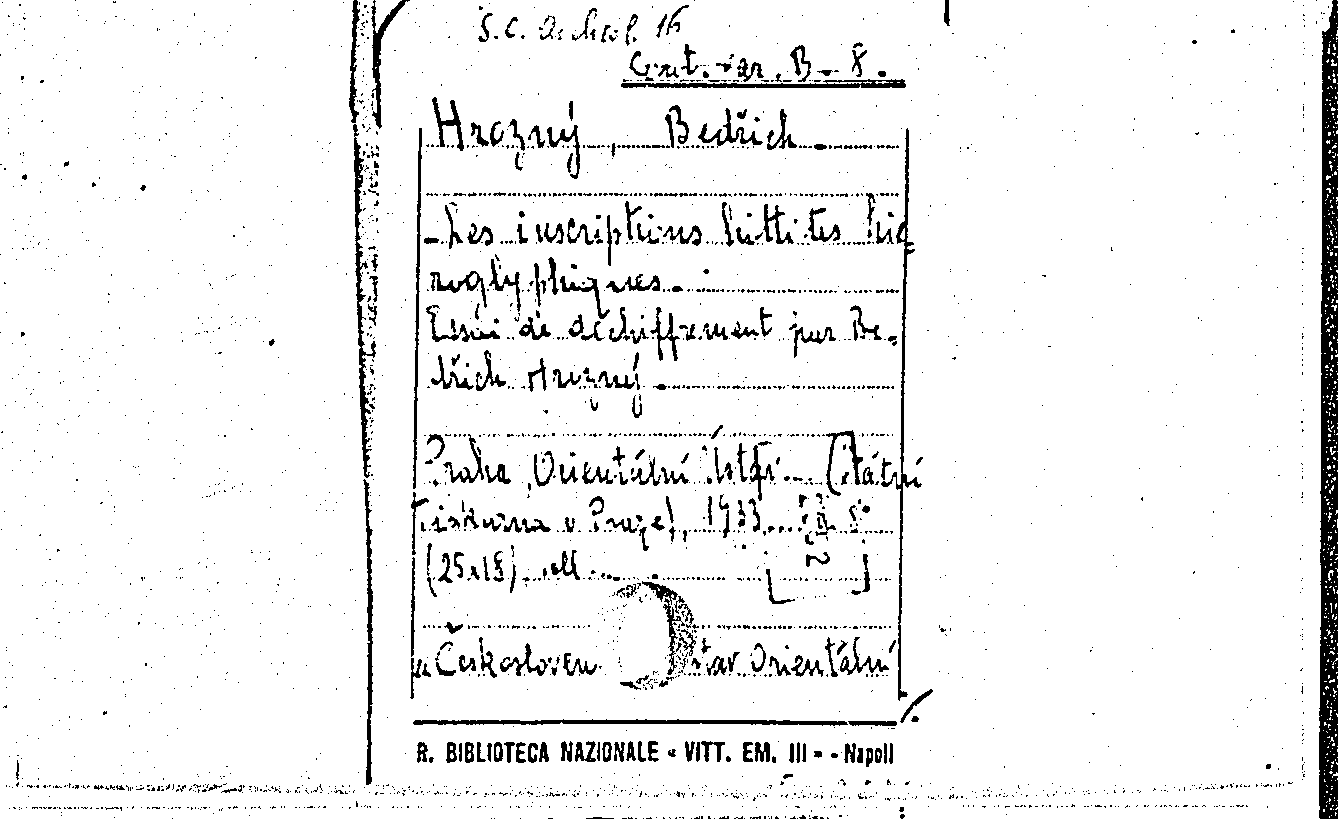 S.C. Archeol. 16
Cont. var. B - 8.
Hrozný, Bedřich.
- Les inscriptions hittites hié=
roglyphiques.
Essai de déchiffrement par Be=
dřich Hrozný.
Praha, Orientální Ústav... (Státní
Tiskárna v Praze), 1933... 8°
(25x18).
Českosloven Orientální
R. BIBLIOTECA NAZIONALE « VITT. EM. III » - Napoli